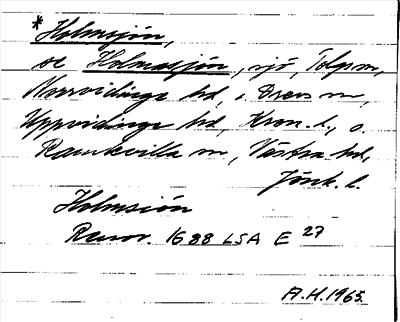 *Holmsjön,
se Holmasjön, sjö, Tolgs sn,
Norrvidinge hd, i Drevs sn,
Uppvidinge hd, Kron. l., o.
Ramkvilla sn, Västra hd,
Jönk. l.
Holmsiön
Ranov. 1688 LSA E 27
A.H. 1965.